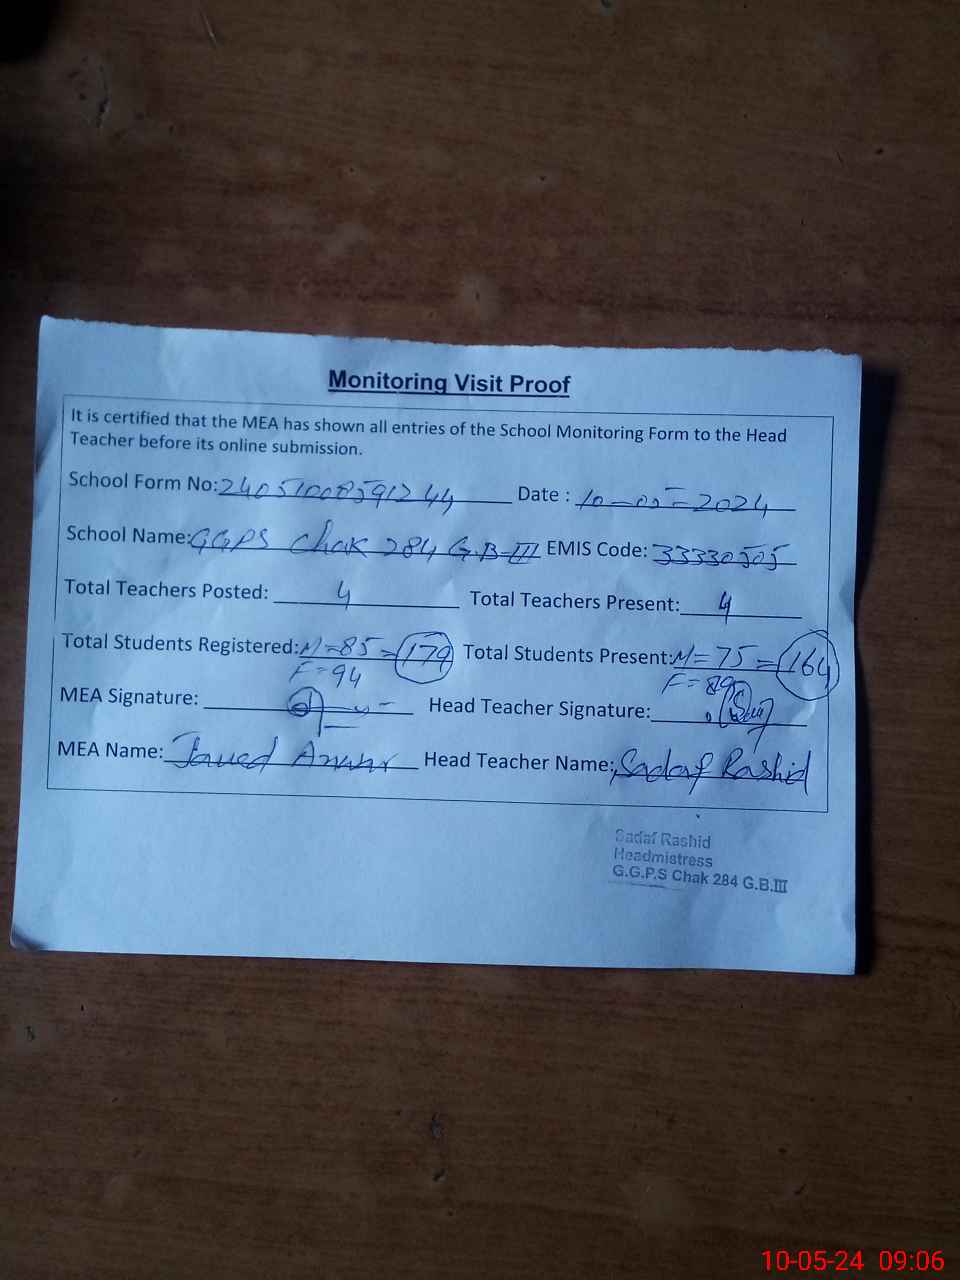 Monitoring Visit Proof
It is certified that the MEA has shown all entries of the School Monitoring Form to the Head
Teacher before its online submission.
School Form No: 24051008591244 Date : 10-05-2024
School Name: GGPS Chak 284 G.B-III EMIS Code: 33330505
Total Teachers Posted: 4 Total Teachers Present: 4
Total Students Registered: M=85 = 179 Total Students Present: M=75 = 164
F=94 F=89
MEA Signature: Head Teacher Signature:
MEA Name: Javed Head Teacher Name: Sadaf Rashid
Sadaf Rashid
Headmistress
G.G.P.S Chak 284 G.B.III
10-05-24 09:06